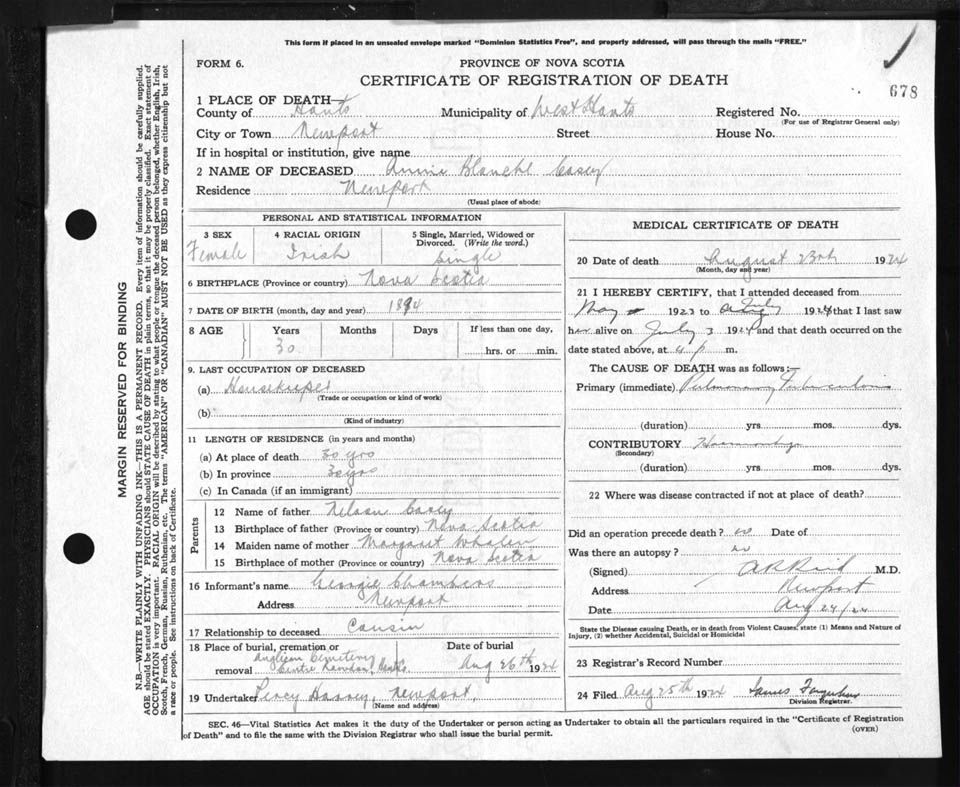 This form if placed in an unsealed envelope marked "Dominion Statistics Free", and properly addressed, will pass through the mails "FREE."
678
FORM 6.
PROVINCE OF NOVA SCOTIA
CERTIFICATE OF REGISTRATION OF DEATH
1 PLACE OF DEATH—
County of Hants Municipality of West Hants Registered No.
(For use of Registrar General only)
City or Town Newport Street House No.
If in hospital or institution, give name
2 NAME OF DECEASED Annie Blanche Casey
Residence Newport
(Usual place of abode)
PERSONAL AND STATISTICAL INFORMATION
3 SEX Female
4 RACIAL ORIGIN Irish
5 Single, Married, Widowed or Divorced. (Write the word.) Single
6 BIRTHPLACE (Province or country) Nova Scotia
7 DATE OF BIRTH (month, day and year) 1894
8 AGE Years Months Days If less than one day,
30 hrs. or min.
9. LAST OCCUPATION OF DECEASED
(a) Housekeeper
(Trade or occupation or kind of work)
(b)
(Kind of industry)
11 LENGTH OF RESIDENCE (in years and months)
(a) At place of death 30 yrs
(b) In province 30 yrs
(c) In Canada (if an immigrant)
Parents
12 Name of father Nelson Casey
13 Birthplace of father (Province or country) Nova Scotia
14 Maiden name of mother Margaret Whalen
15 Birthplace of mother (Province or country) Nova Scotia
16 Informant's name Georgie Chambers
Address Newport
17 Relationship to deceased Cousin
18 Place of burial, cremation or removal Anglican Cemetery
Centre Hants
Date of burial Aug 26th 1924
19 Undertaker Percy Newport
(Name and address)
MEDICAL CERTIFICATE OF DEATH
20 Date of death August 23rd 1924
(Month, day and year)
21 I HEREBY CERTIFY, that I attended deceased from
May 1923 to 1924 that I last saw
her alive on July 3 1924 and that death occurred on the
date stated above, at 4 p m.
The CAUSE OF DEATH was as follows:—
Primary (immediate) Pulmonary Tuberculosis
(duration) yrs. mos. dys.
CONTRIBUTORY
(Secondary)
(duration) yrs. mos. dys.
22 Where was disease contracted if not at place of death?
Did an operation precede death? no Date of
Was there an autopsy? no
(Signed) M.D.
Address Newport
Date Aug 24/24
State the Disease causing Death, or in death from Violent Causes, state (1) Means and Nature of Injury, (2) whether Accidental, Suicidal or Homicidal
23 Registrar's Record Number
24 Filed Aug 25th 1924 James
Division Registrar.
SEC. 46—Vital Statistics Act makes it the duty of the Undertaker or person acting as Undertaker to obtain all the particulars required in the "Certificate of Registration
of Death" and to file the same with the Division Registrar who shall issue the burial permit.
(OVER)
MARGIN RESERVED FOR BINDING
N.B.—WRITE PLAINLY WITH UNFADING INK—THIS IS A PERMANENT RECORD. Every item of information should be carefully supplied.
AGE should be stated EXACTLY. PHYSICIANS should STATE CAUSE OF DEATH in plain terms, so that it may be properly classified. Exact statement of
OCCUPATION is very important. RACIAL ORIGIN will be described by stating to what people or tongue the deceased person belonged, whether English, Irish,
Scotch, French, German, Russian, Ruthenian, etc. The terms "AMERICAN" OR "CANADIAN" MUST NOT BE USED as they express citizenship but not
a race or people. See instructions on back of Certificate.